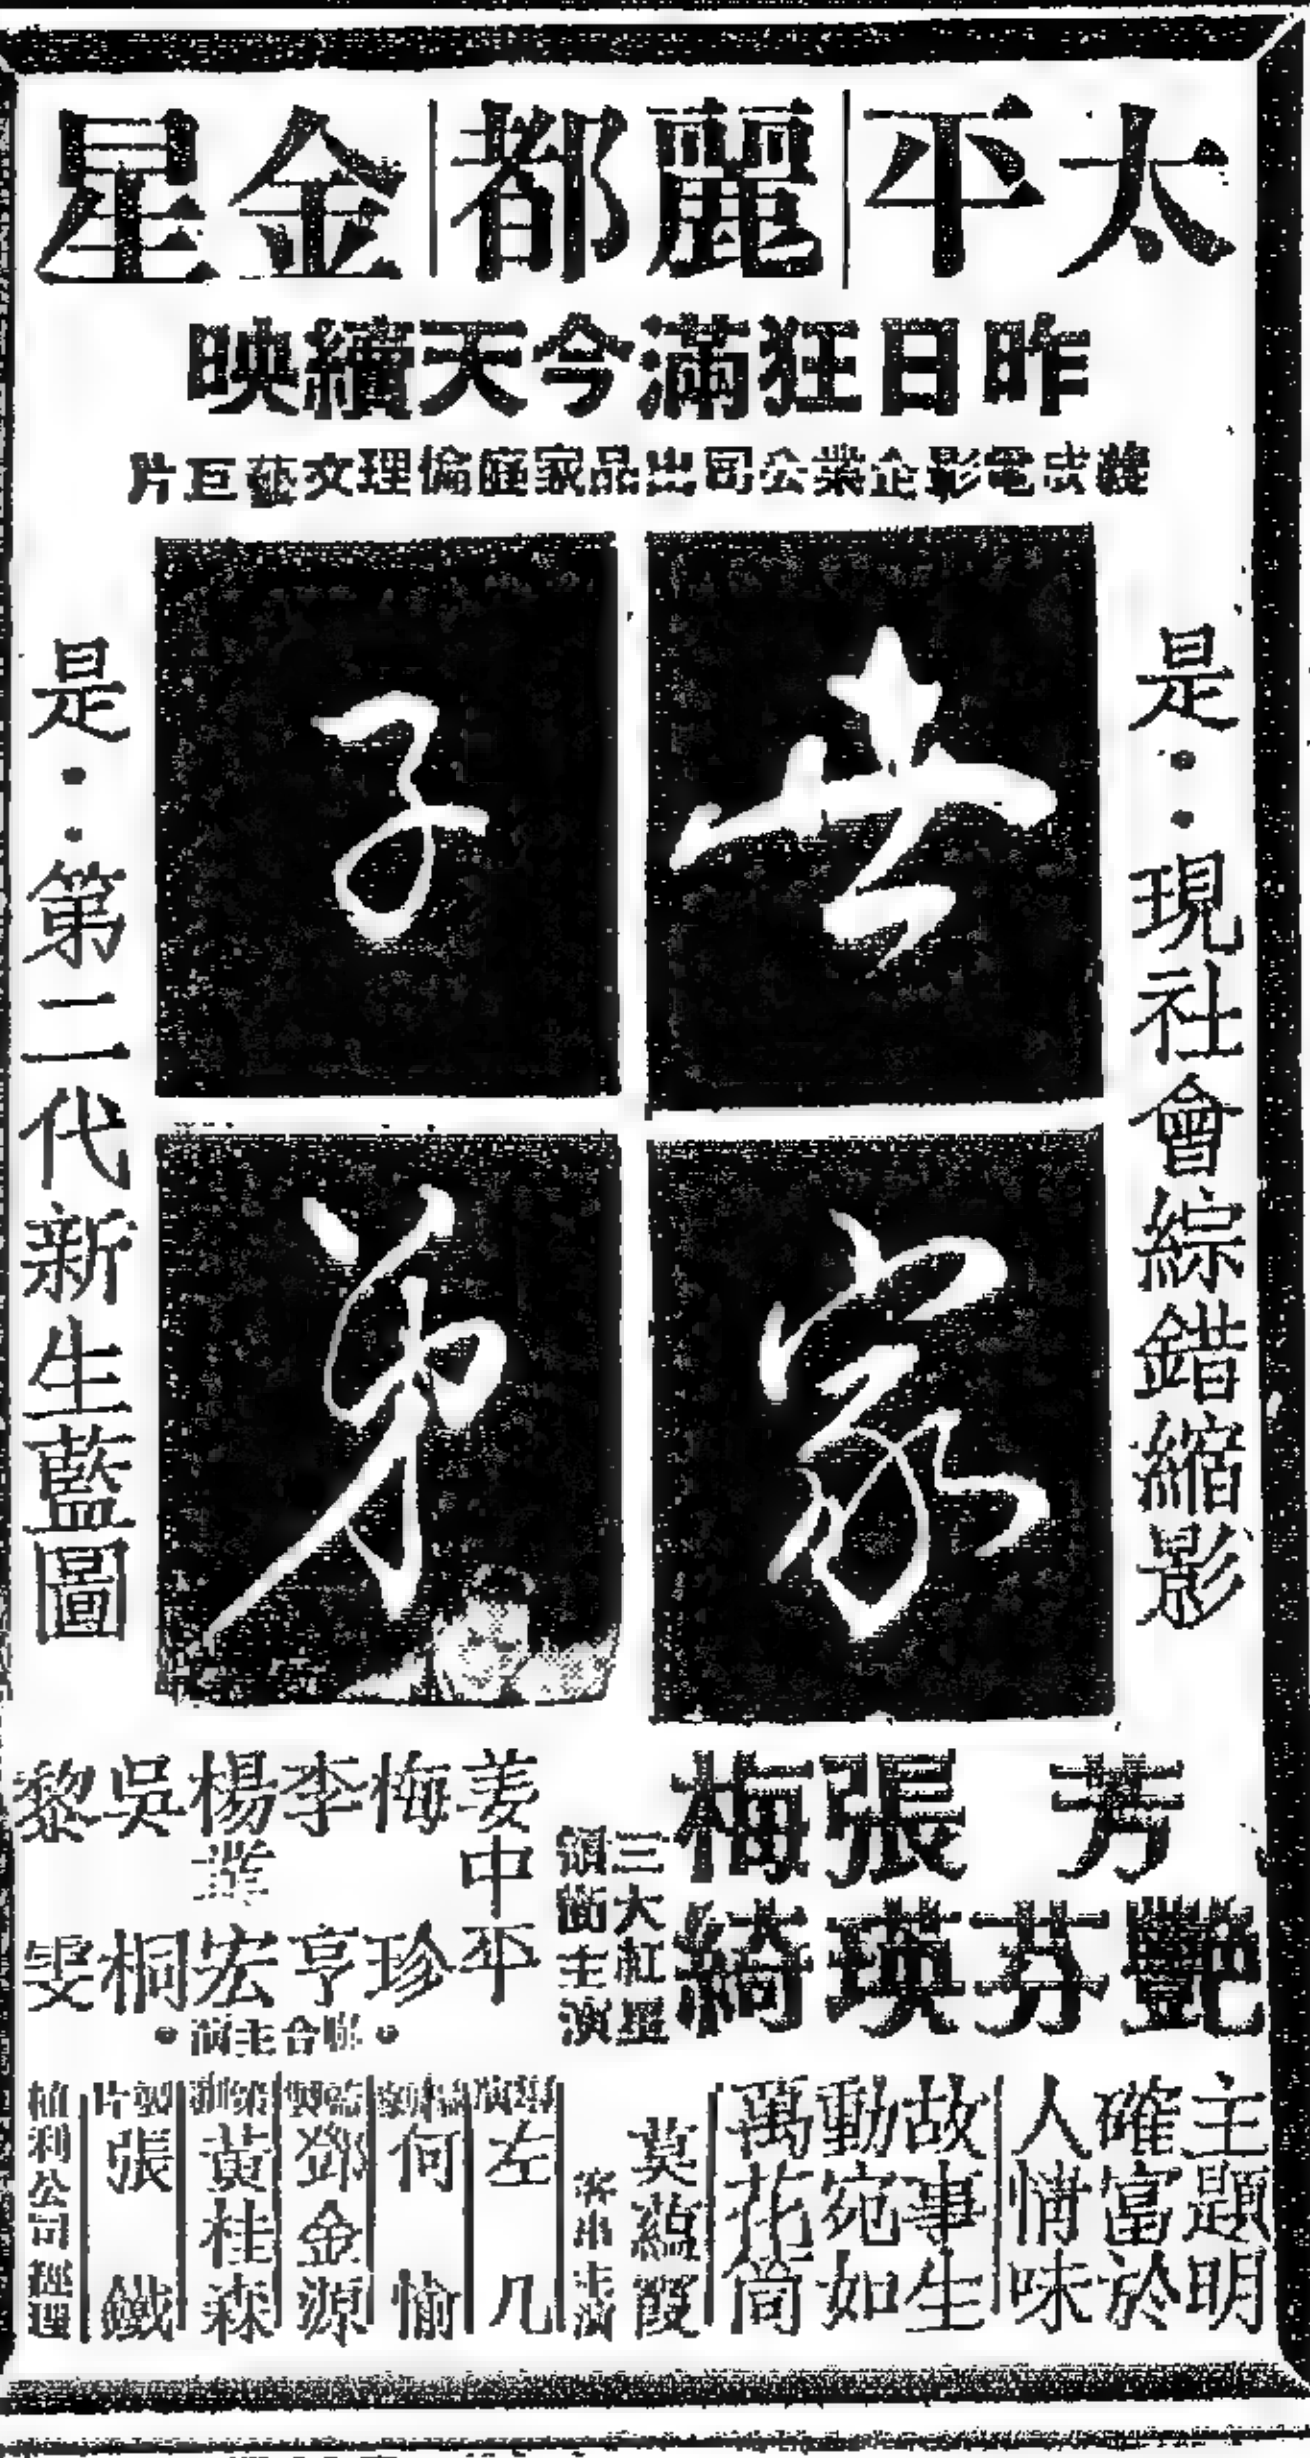 太平｜麗都｜金星
昨日狂滿今天續映
電影企業公司出品家庭倫理文藝巨片
是··現社會綜錯縮影
世家
子弟
是··第二代新生藍圖
芳艷芬
張瑛
梅綺
三大紅星
領銜主演
姜中平
梅珍
李亨
楊業宏
吳桐
黎雯
·聯合主演·
主題明
確富於
人情味
故事生
動宛如
萬花筒
莫蘊霞
客串主演
導演
左几
編劇
何愉
監製
鄧金源
黃桂森
製片
張鐵
植利公司經理